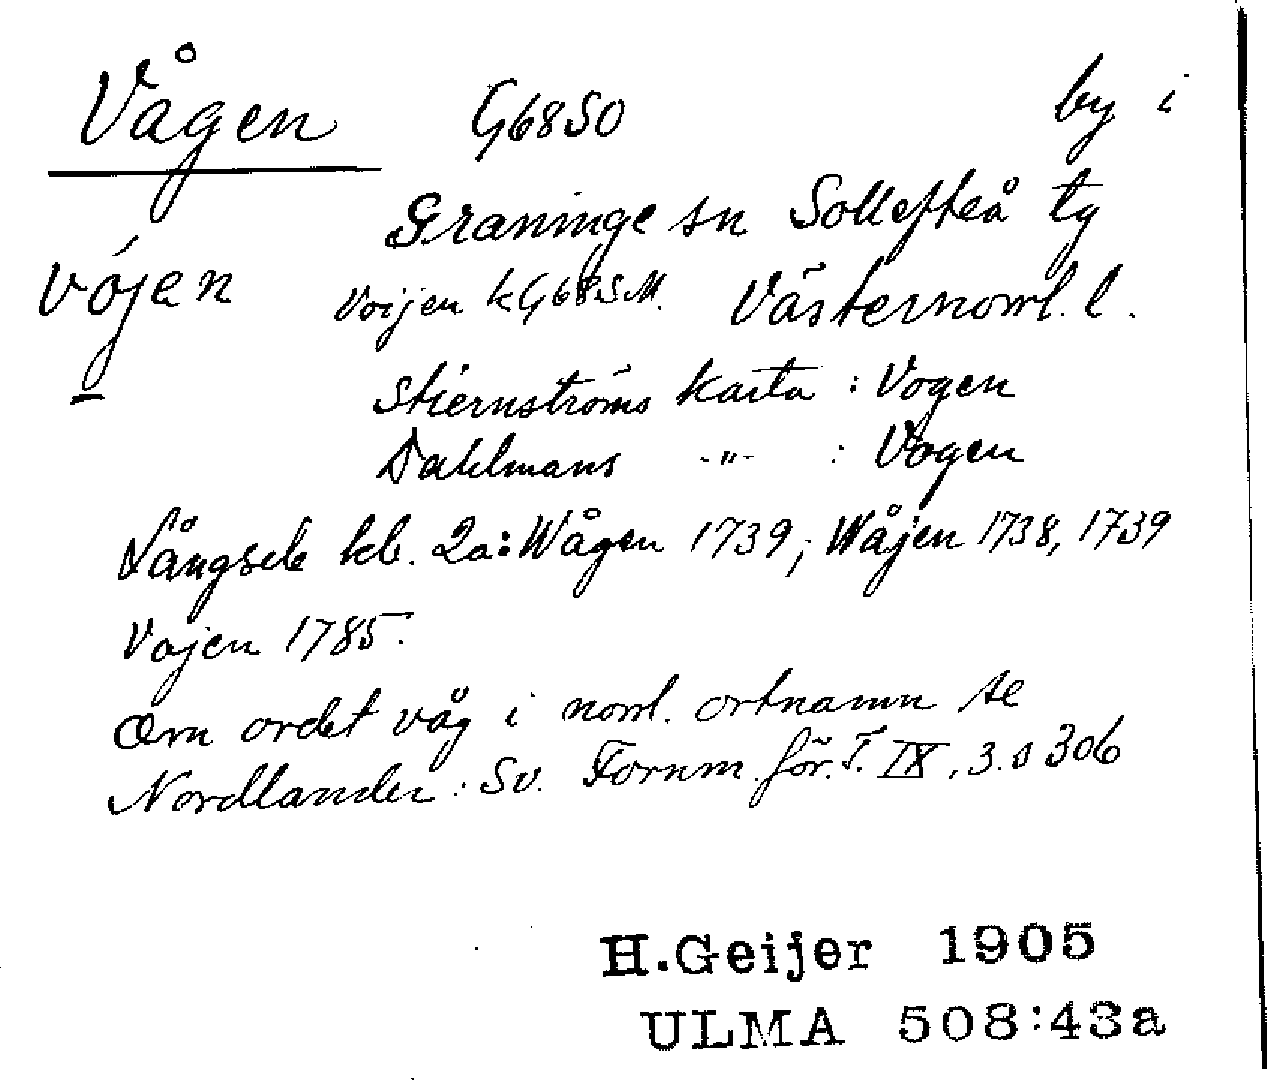 Vågen G6850 by i
Graninge sn Sollefteå tg
vójen Voijen kG685M. Västernorrl. l.
Stiernströms karta : Vogen
Dahlmans -"- : Vogen
Långsele kb. 2a: Wågen 1739; Wåjen 1738, 1739
Vojen 1785.
Om ordet våg i norrl. ortnamn se
Nordlander: Sv. Fornm. för. T. IX, 3. s 306
H.Geijer 1905
ULMA 508:43a